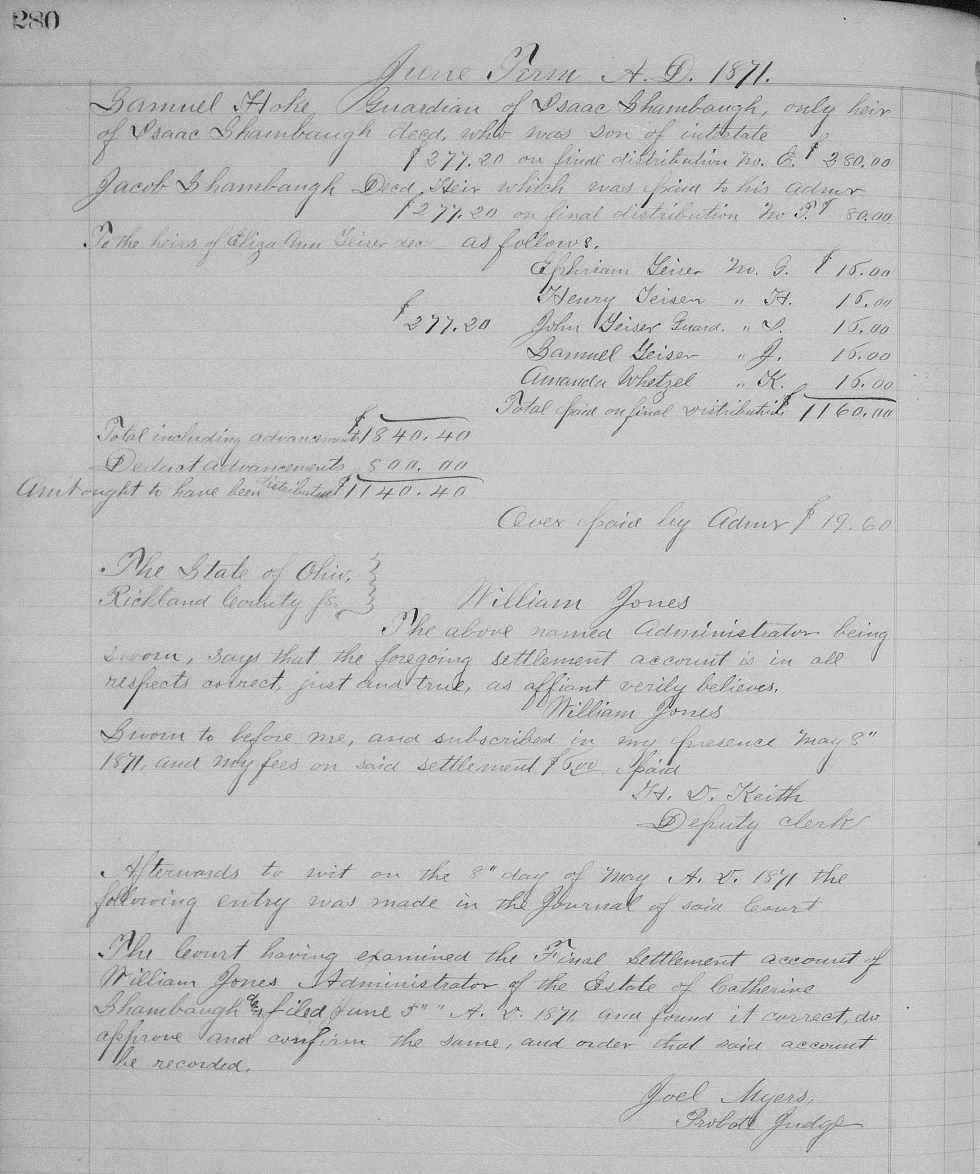 280
June Term A. D. 1871.
Samuel Hoke Guardian of Isaac Shambaugh, only heir
of Isaac Shambaugh decd, who was son of intestate
$277.20 on final distribution No. E. $ 280.00
Jacob Shambaugh Decd, Heir which was paid to his admr
$277.20 on final distribution No F. $ 80.00
To the heirs of Eliza Ann Geiser decd as follows.
Ephriam Geiser No. G. $ 16.00
Henry Geiser " H. 16.00
$277.20 John Geiser Guard. " I. 16.00
Samuel Geiser " J. 16.00
Amanda Whetzel " K. 16.00
Total paid on final distribution $1160.00
Total including advancements $1840.40
Deduct advancements 800.00
Amt ought to have been distributed $1140.40
Over paid by Admr $19.60
The State of Ohio,
Richland County ss. William Jones
The above named Administrator being
sworn, says that the foregoing settlement account is in all
respects correct, just and true, as affiant verily believes.
William Jones
Sworn to before me, and subscribed in my presence May 8"
1871, and my fees on said settlement $6.00 paid
H. D. Keith
Deputy clerk
Afterwards to wit on the 8" day of May A. D. 1871 the
following entry was made in the Journal of said Court
The Court having examined the Final Settlement account of
William Jones Administrator of the Estate of Catherine
Shambaugh filed June 5" " A. D. 1871 and found it correct, do
approve and confirm the same, and order that said account
be recorded.
Joel Myers,
Probate Judge